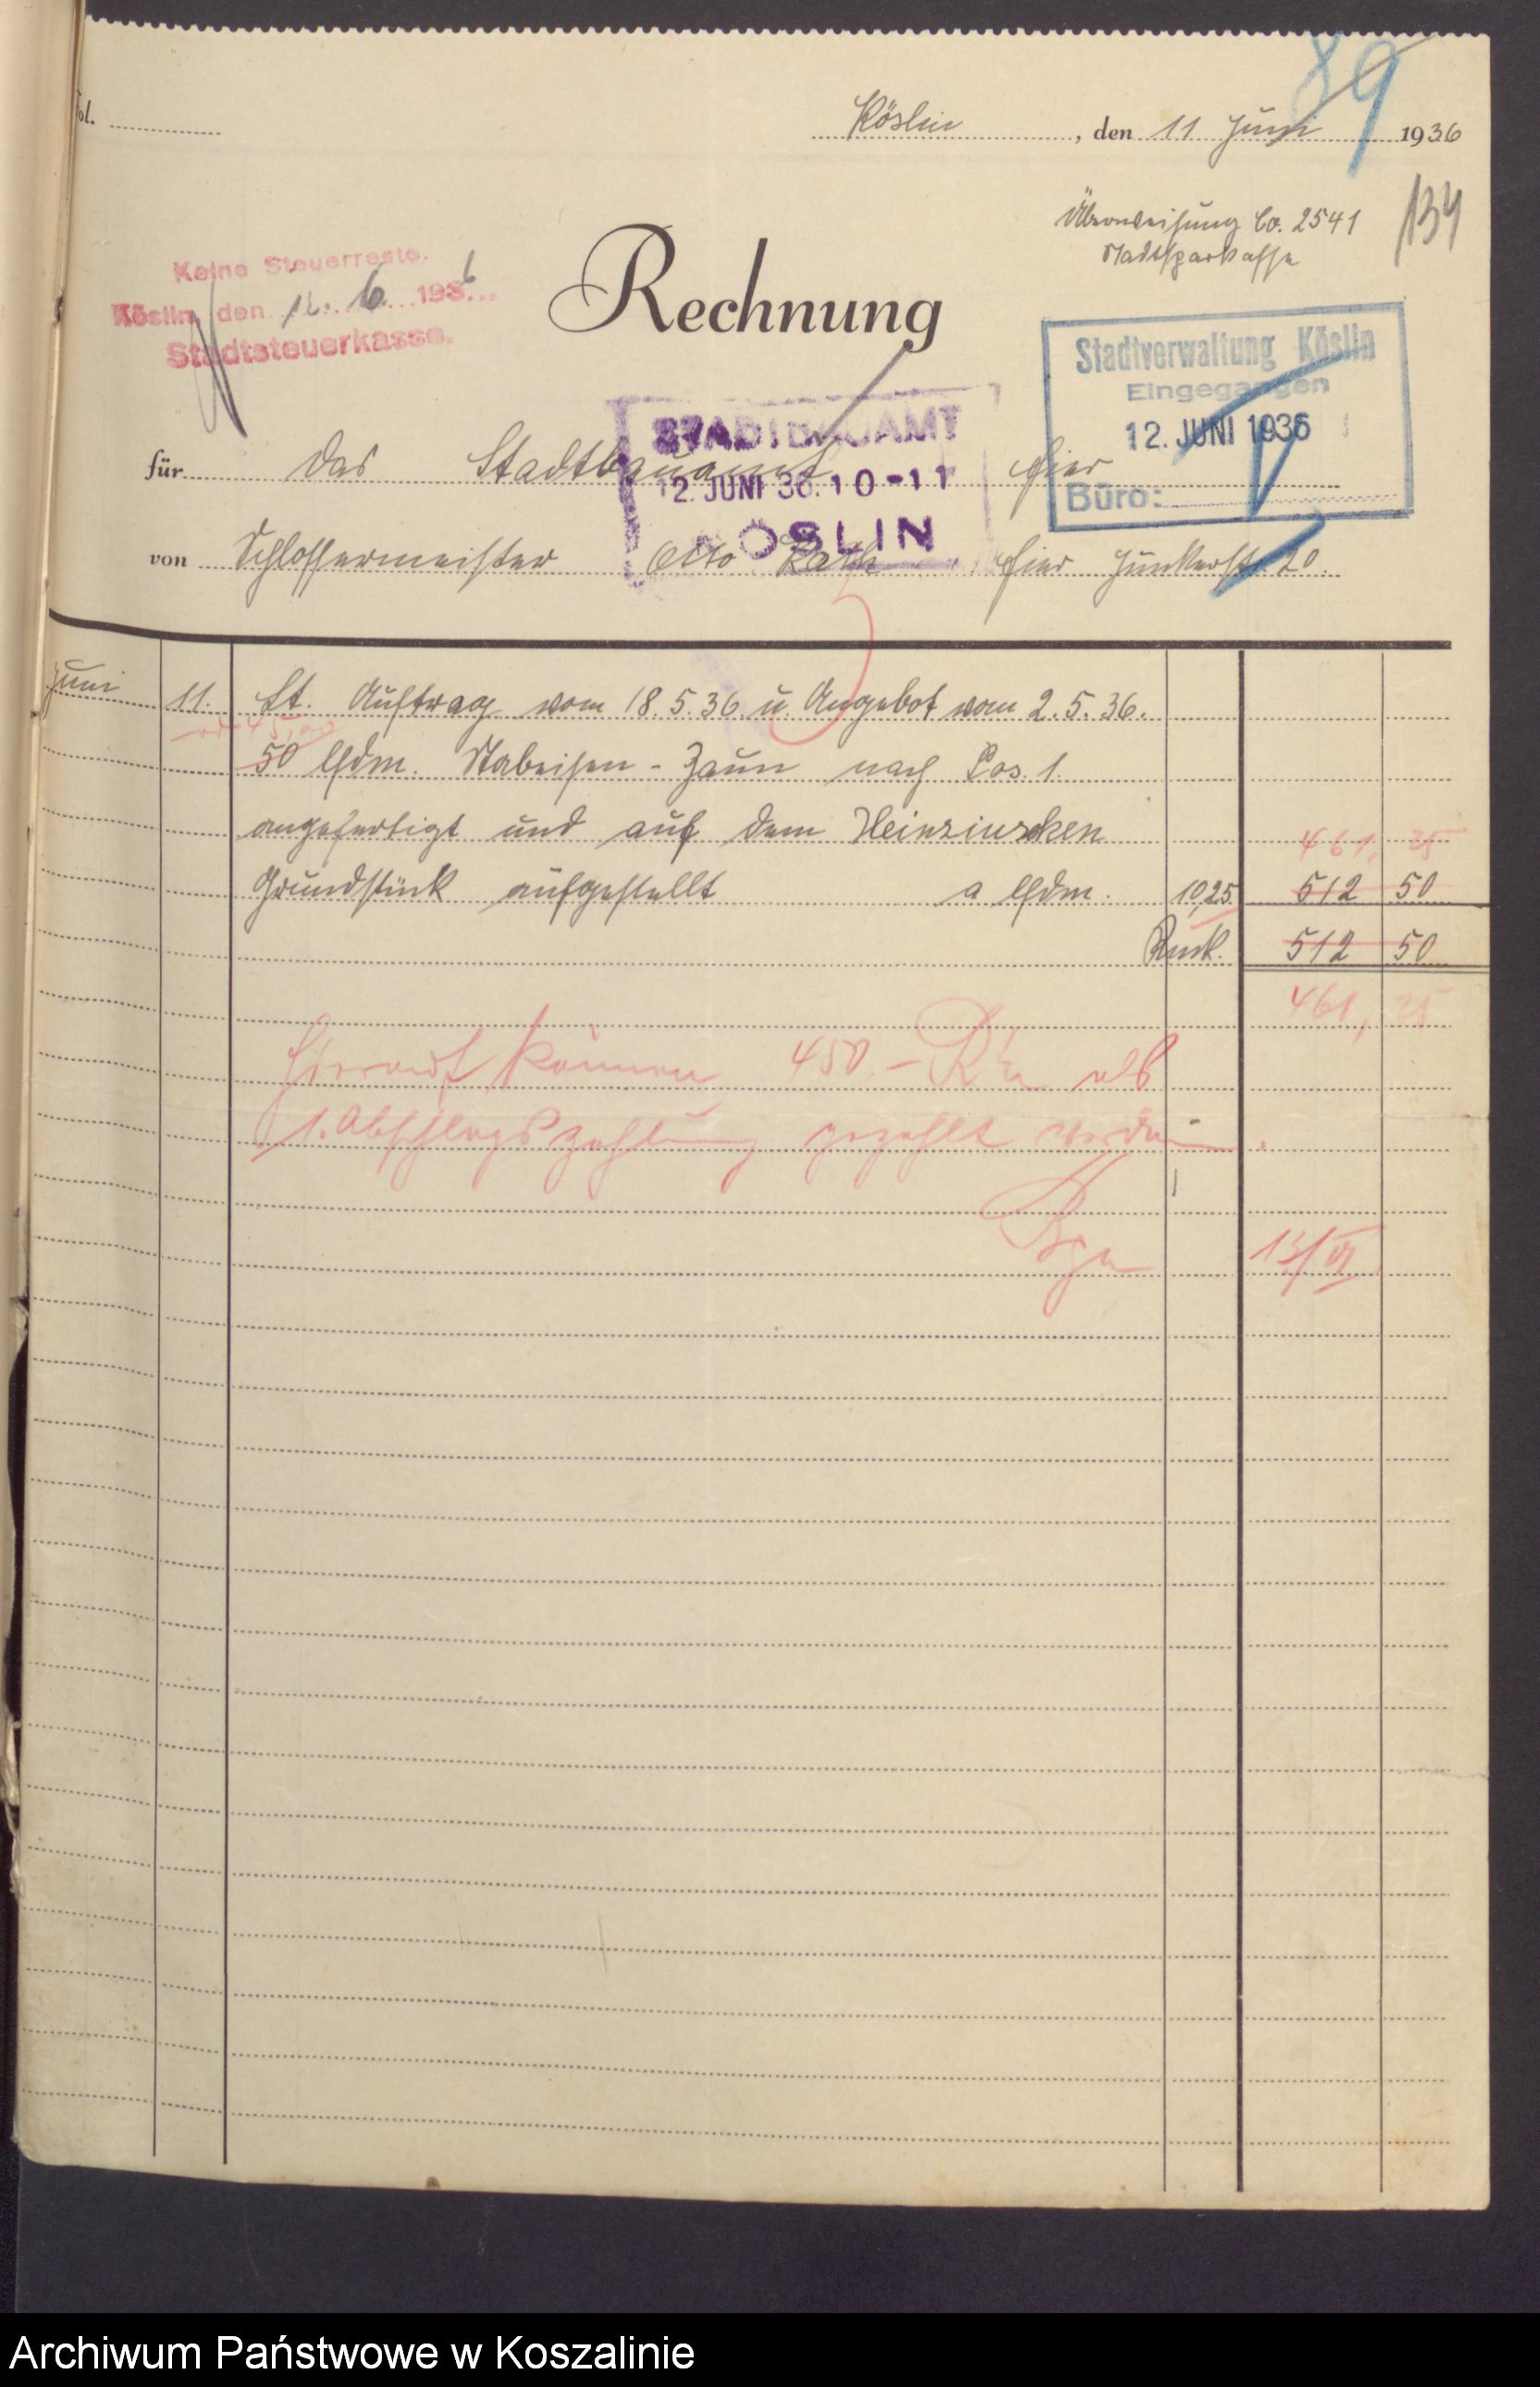 89
Fol.
Köslin, den 11 Juni 1936
134
Überweisung Co. 2541
Stadtsparkasse
Keine Steuerreste.
Köslin, den 12. 6. 1936
Stadtsteuerkasse.
Rechnung
Stadtverwaltung Köslin
Eingegangen
12. JUNI 1936
Büro:
STADTBAUAMT
12. JUNI 36. 10-11
KÖSLIN
für das Stadtbauamt hier
von Schlossermeister Otto Rath hier Junkerstr. 20.
Juni 11. Lt. Auftrag vom 18.5.36 u. Angebot vom 2.5.36.
45,00
50 lfdm. Stabeisen-Zaun nach Pos. 1.
angefertigt und auf dem
461, 25
Grundstück aufgestellt a lfdm. 10,25 512 50
512 50
461, 25
Hierauf können 450.- RM als
1. Abschlagszahlung gezahlt werden.
13/VI
Archiwum Państwowe w Koszalinie